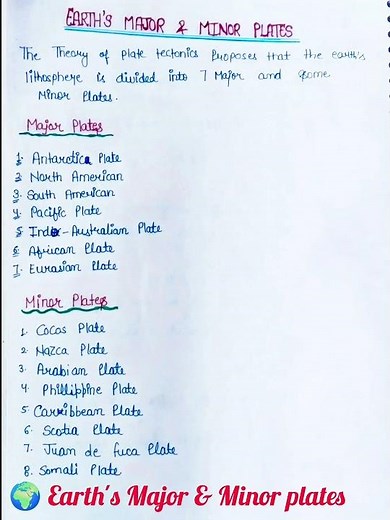 EARTH'S MAJOR & MINOR PLATES
The Theory of plate tectonics Proposes that the earth's
lithosphere is divided into 7 Major and some
Minor Plates.
Major Plates
1. Antarctica Plate
2. North American
3. South American
4. Pacific Plate
5. Indo-Australian Plate
6. African Plate
7. Eurasian Plate
Minor Plates
1. Cocas Plate
2. Nazca Plate
3. Arabian Plate
4. Phillippine Plate
5. Carribbean Plate
6. Scotia Plate
7. Juan de fuca Plate
8. Somali Plate
🌍 Earth's Major & Minor plates